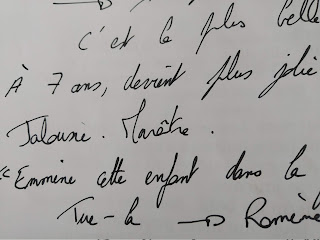 c'est la plus belle
À 7 ans, devient plus jolie
Jalousie. Marâtre.
"Emmène cette enfant dans la
Tue-la → Ramène